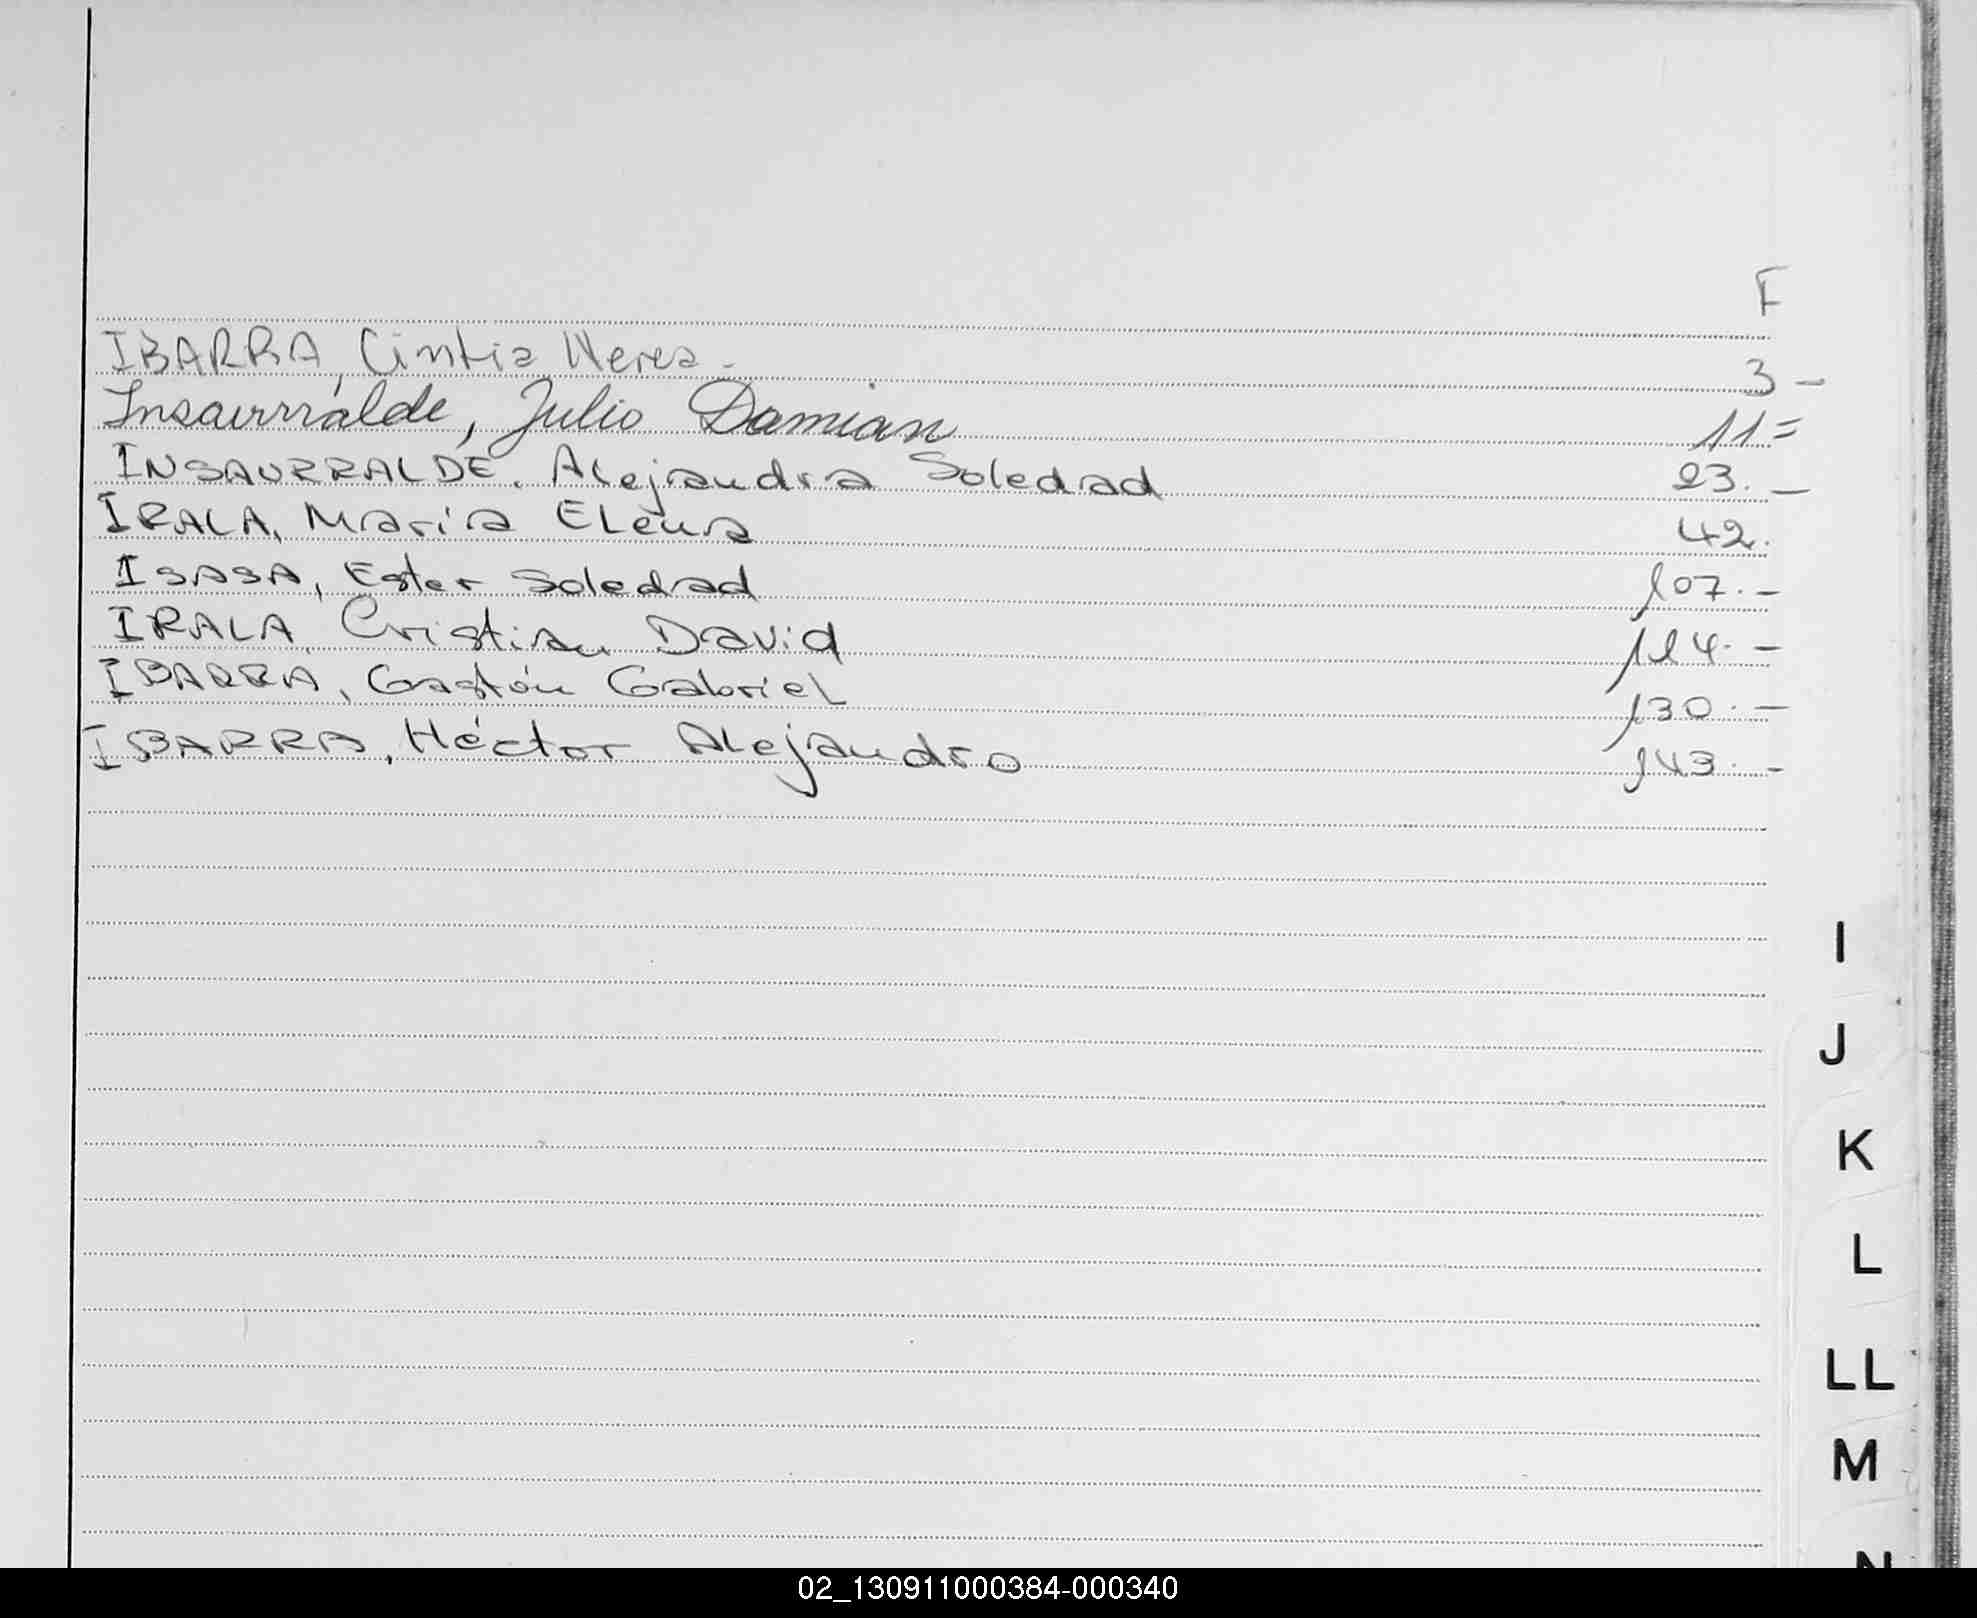 F
IBARRA, Cintia Nerea - 3 -
Insaurralde, Julio Damian 11 =
INSAURRALDE, Alejandra Soledad 23. -
IRALA, María Elena 42.
ISASA, Ester Soledad 107. -
IRALA Cristian David 124. -
IBARRA, Gastón Gabriel 130. -
IBARRA, Héctor Alejandro 143. -
I
J
K
L
LL
M
N
02_130911000384-000340